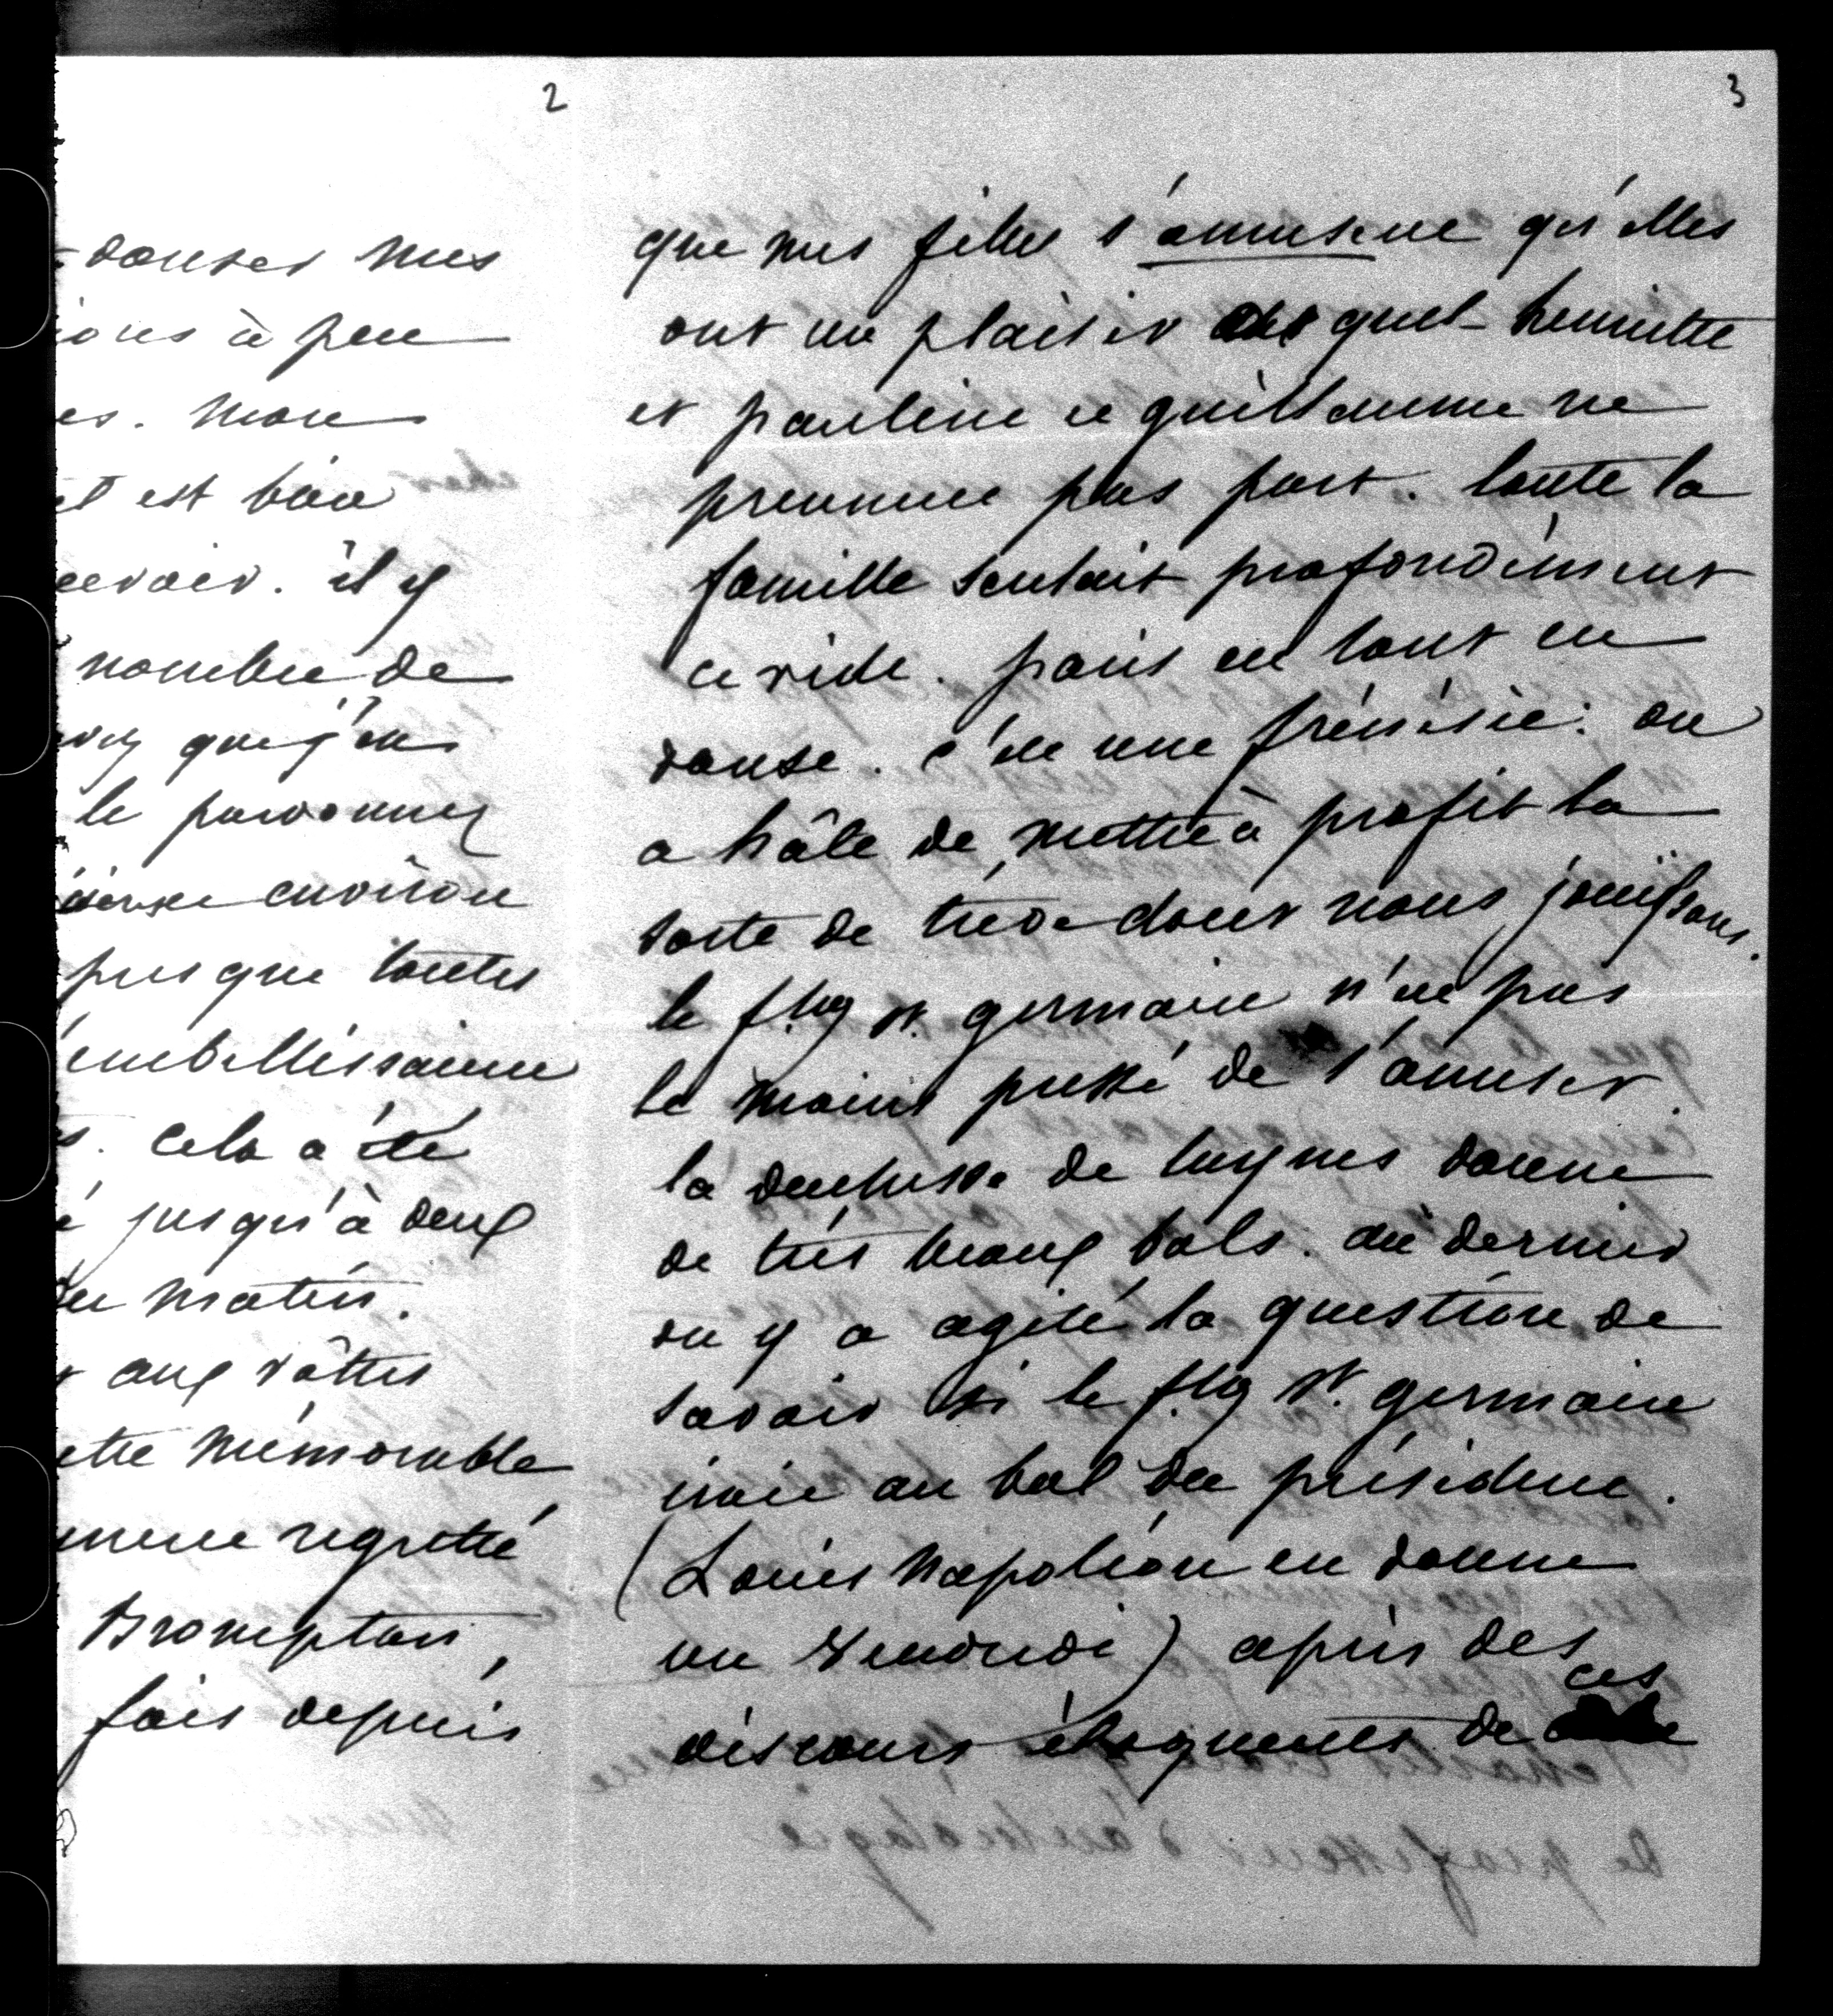 2
danser mes
ions à peu
es. mon
il est bien
cevoir. il y
nombre de
que j'en
le pardonner
environ
presque toutes
embellissaient
. cela a été
é jusqu'à deux
du matin.
aux vôtres
ette mémorable
ment regretté
Brompton,
fois depuis
3
que mes filles s'amusent qu'elles
ont un plaisir auquel henriette
et pauline et guillaume ne
prennent pas part. toute la
famille sentait profondément
ce vide. paris est tout en
danse. c'est une frénésie: on
a hâte de mettre à profit la
sorte de trève dont nous jouissons.
le fbg st. germain n'est pas
le moins pressé de s'amuser.
la duchesse de luynes donne
de très beaux bals. au dernier
on y a agité la question de
savoir si le fbg st. germain
irait au bal du président.
(Louis Napoléon en donne
un vendredi) après des
discours éloquents de ces